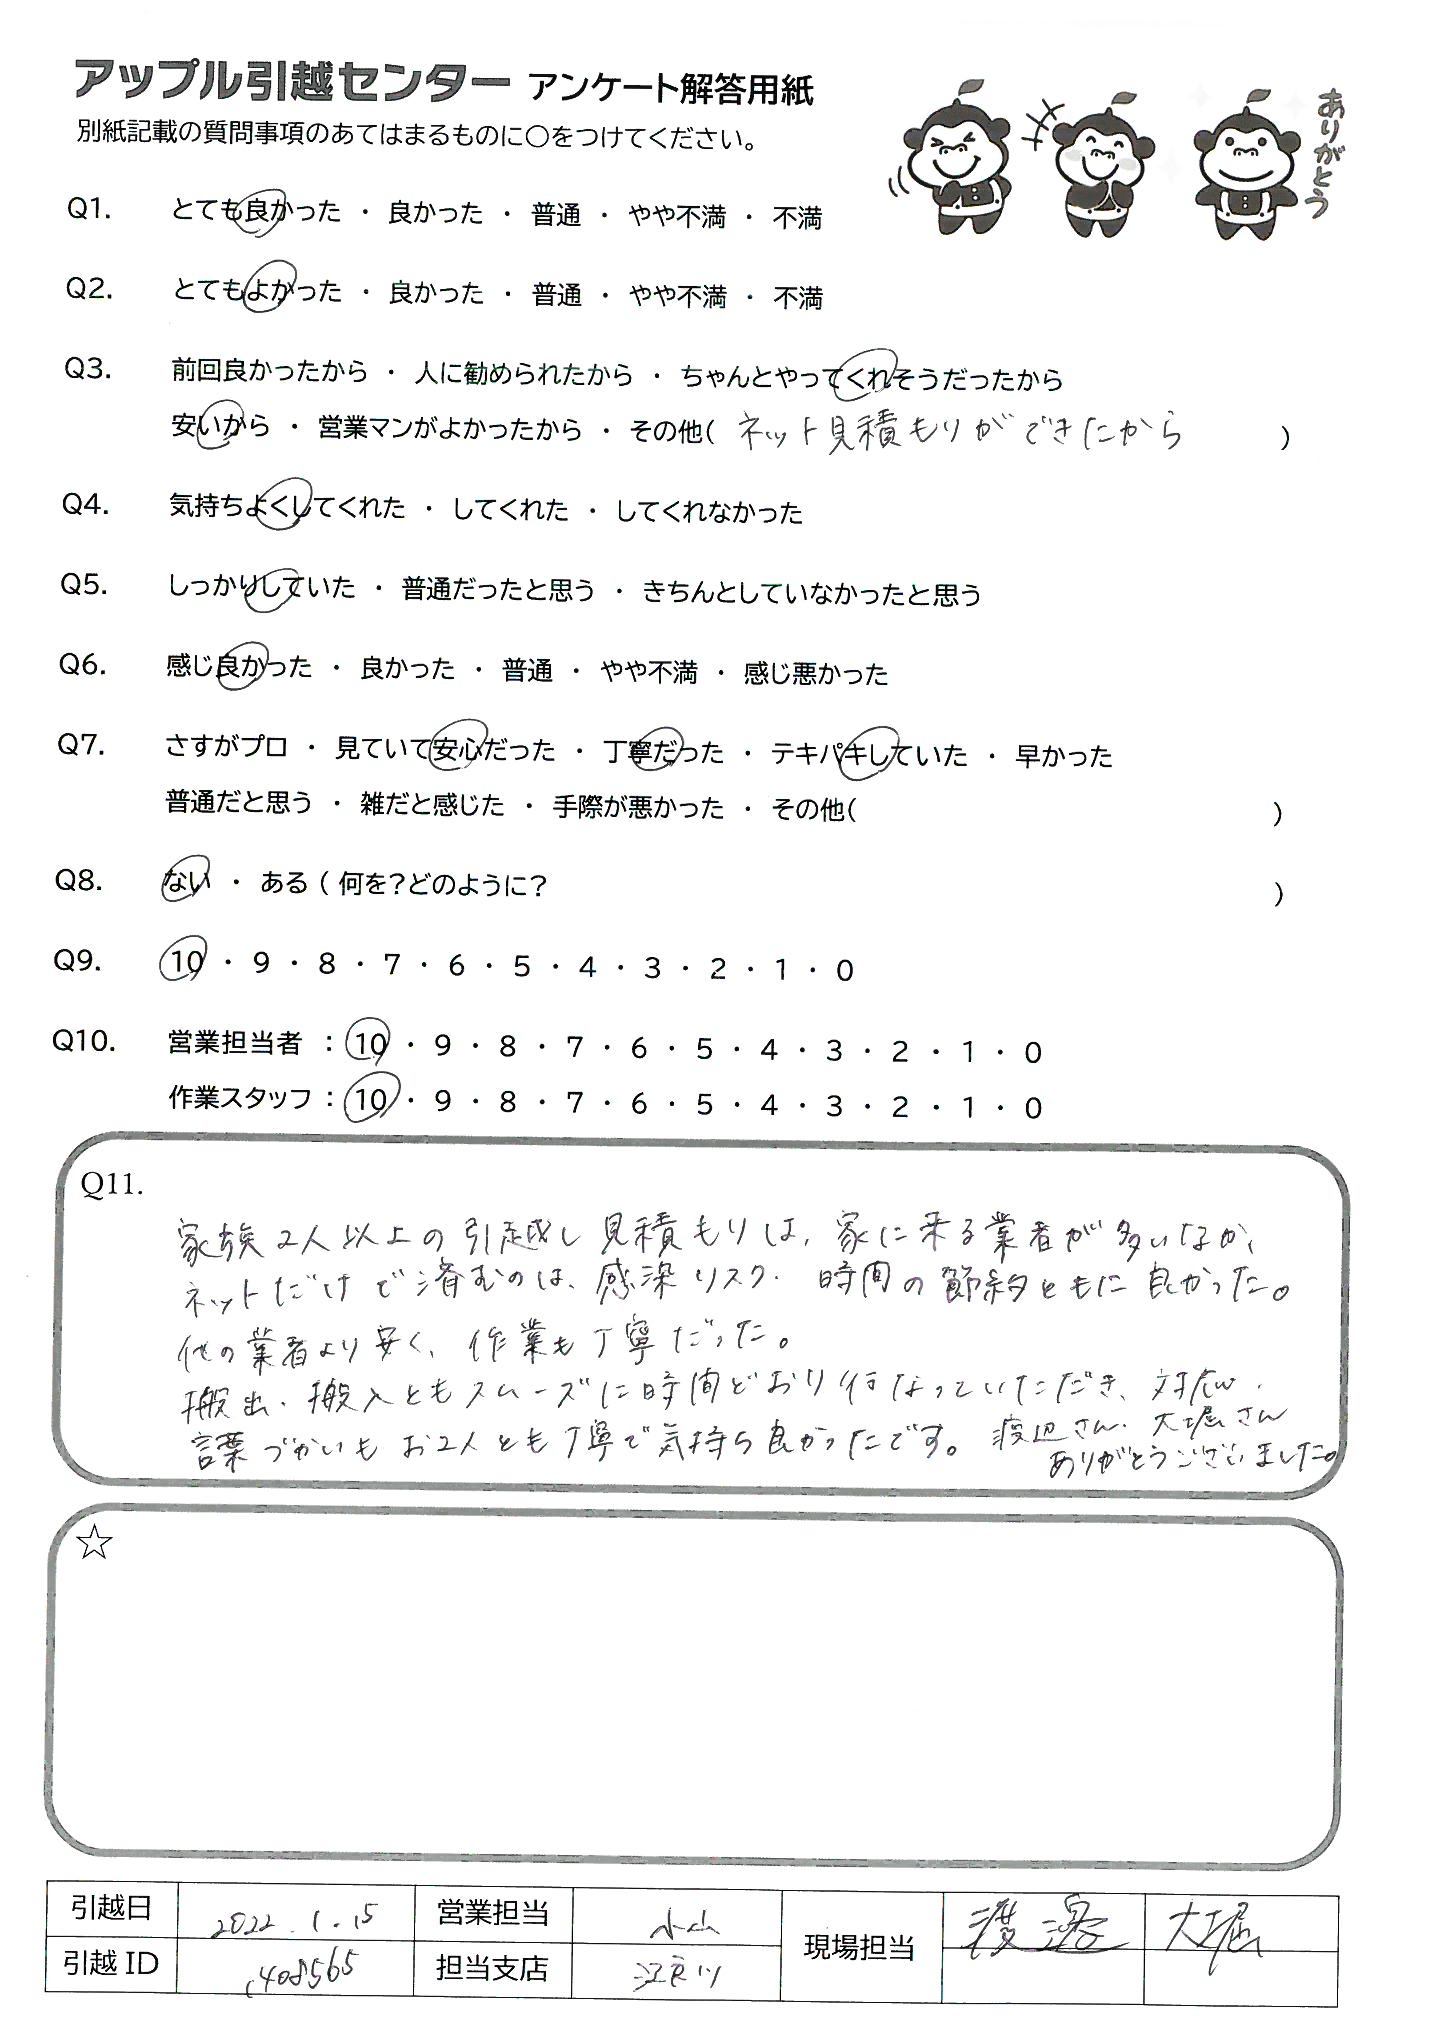 アップル引越センター アンケート解答用紙
別紙記載の質問事項のあてはまるものに○をつけてください。
ありがとう
Q1. とても良かった ・ 良かった ・ 普通 ・ やや不満 ・ 不満
Q2. とてもよかった ・ 良かった ・ 普通 ・ やや不満 ・ 不満
Q3. 前回良かったから ・ 人に勧められたから ・ ちゃんとやってくれそうだったから
安いから ・ 営業マンがよかったから ・ その他( ネット見積もりができたから )
Q4. 気持ちよくしてくれた ・ してくれた ・ してくれなかった
Q5. しっかりしていた ・ 普通だったと思う ・ きちんとしていなかったと思う
Q6. 感じ良かった ・ 良かった ・ 普通 ・ やや不満 ・ 感じ悪かった
Q7. さすがプロ ・ 見ていて安心だった ・ 丁寧だった ・ テキパキしていた ・ 早かった
普通だと思う ・ 雑だと感じた ・ 手際が悪かった ・ その他( )
Q8. ない ・ ある ( 何を?どのように? )
Q9. 10 ・ 9 ・ 8 ・ 7 ・ 6 ・ 5 ・ 4 ・ 3 ・ 2 ・ 1 ・ 0
Q10. 営業担当者 : 10 ・ 9 ・ 8 ・ 7 ・ 6 ・ 5 ・ 4 ・ 3 ・ 2 ・ 1 ・ 0
作業スタッフ : 10 ・ 9 ・ 8 ・ 7 ・ 6 ・ 5 ・ 4 ・ 3 ・ 2 ・ 1 ・ 0
Q11.
家族2人以上の引越し見積もりは、家に来る業者が多いなか、
ネットだけで済むのは、感染リスク・時間の節約ともに良かった。
他の業者より安く、作業も丁寧だった。
搬出・搬入ともスムーズに時間どおり行なっていただき、対応・
言葉づかいもお2人とも丁寧で気持ち良かったです。渡辺さん・大堀さん
ありがとうございました。
☆
引越日 2022.1.15 営業担当 小山 現場担当 渡邉 大堀
引越 ID 1408565 担当支店 江戸川